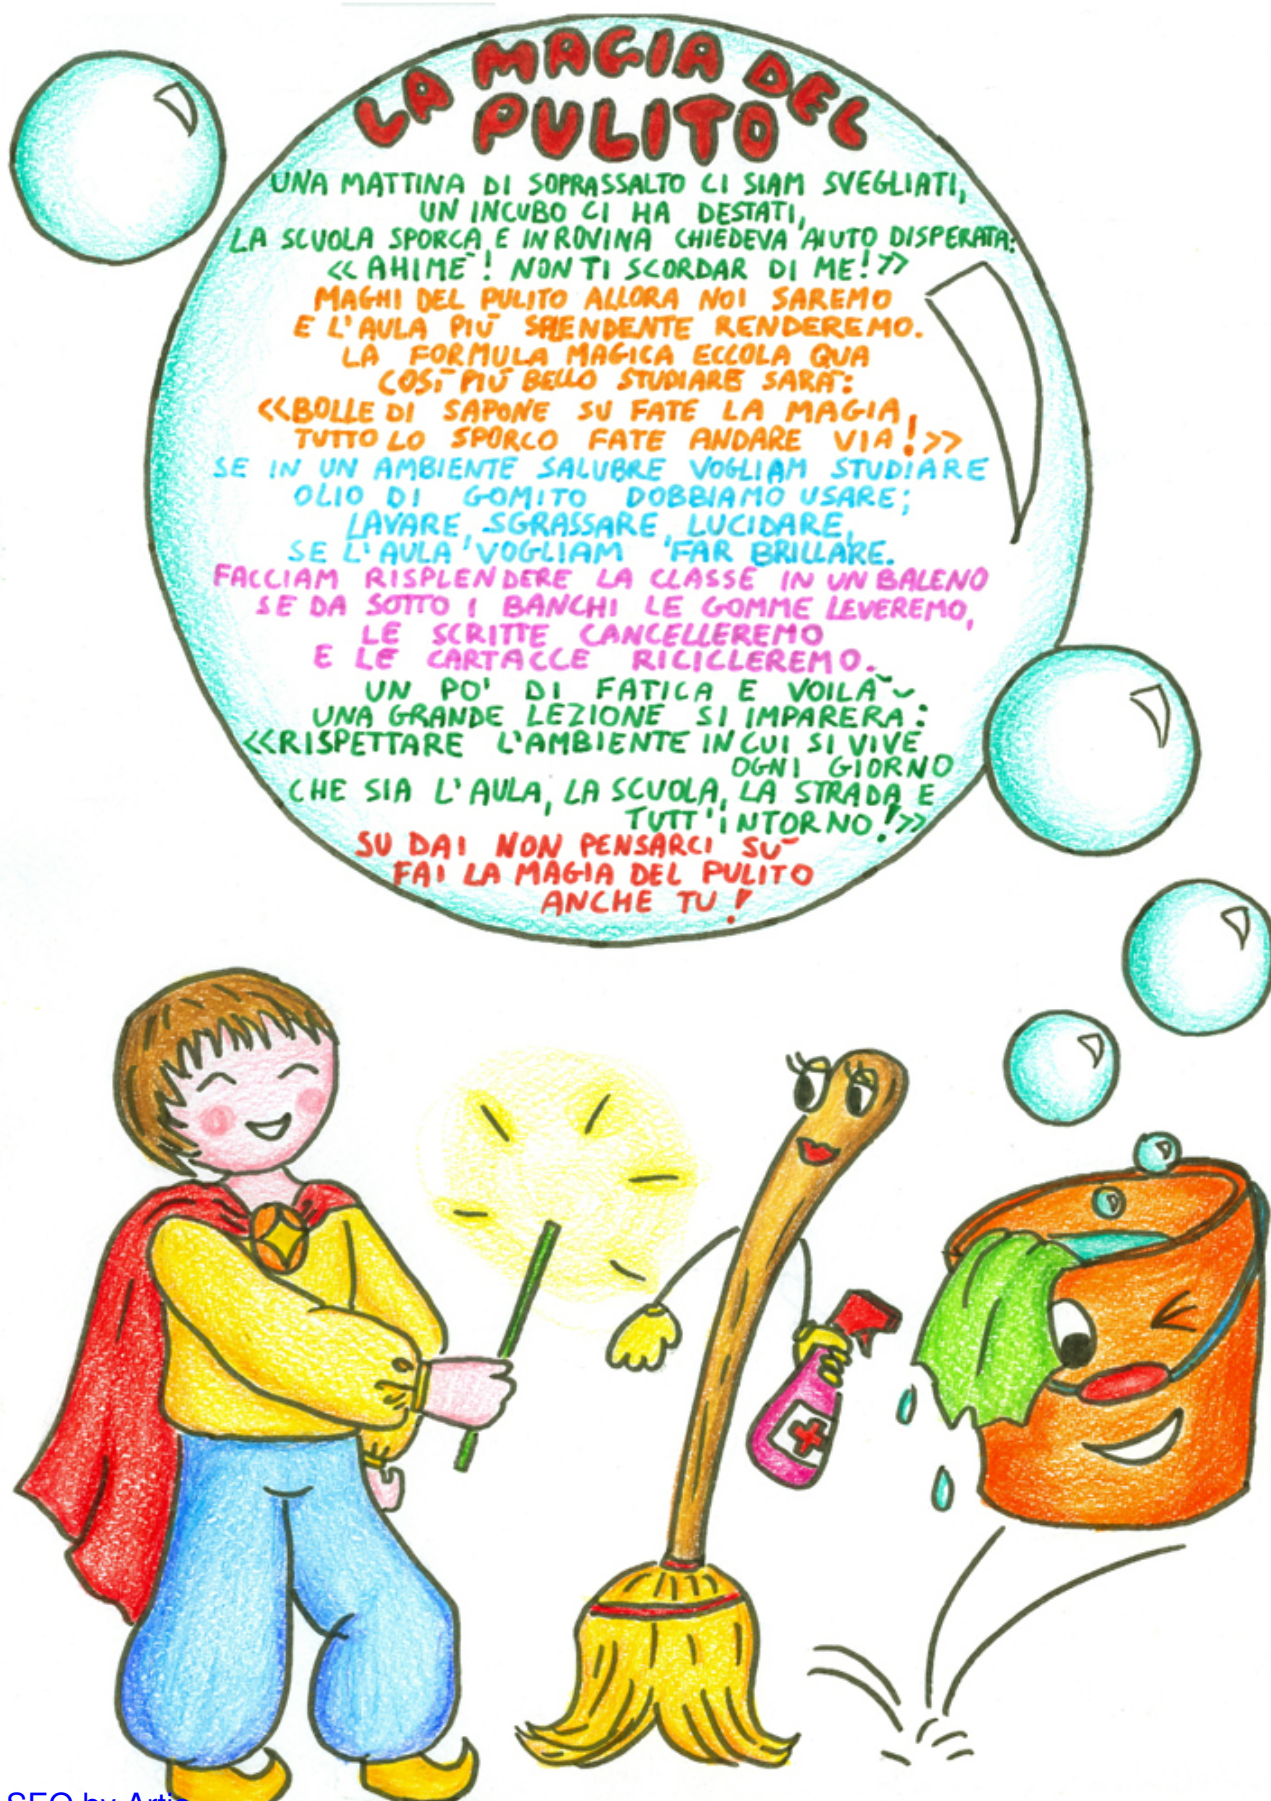 LA MAGIA DEL
PULITO
UNA MATTINA DI SOPRASSALTO CI SIAM SVEGLIATI,
UN INCUBO CI HA DESTATI,
LA SCUOLA SPORCA E IN ROVINA CHIEDEVA AIUTO DISPERATA:
<<AHIMÈ! NON TI SCORDAR DI ME!>>
MAGHI DEL PULITO ALLORA NOI SAREMO
E L'AULA PIÙ SPLENDENTE RENDEREMO.
LA FORMULA MAGICA ECCOLA QUA
COSÌ PIÙ BELLO STUDIARE SARÀ:
<<BOLLE DI SAPONE SU FATE LA MAGIA,
TUTTO LO SPORCO FATE ANDARE VIA!>>
SE IN UN AMBIENTE SALUBRE VOGLIAM STUDIARE
OLIO DI GOMITO DOBBIAMO USARE;
LAVARE, SGRASSARE, LUCIDARE,
SE L'AULA VOGLIAM FAR BRILLARE.
FACCIAM RISPLENDERE LA CLASSE IN UN BALENO
SE DA SOTTO I BANCHI LE GOMME LEVEREMO,
LE SCRITTE CANCELLEREMO
E LE CARTACCE RICICLEREMO.
UN PO' DI FATICA E VOILÀ
UNA GRANDE LEZIONE SI IMPARERÀ:
<<RISPETTARE L'AMBIENTE IN CUI SI VIVE
OGNI GIORNO
CHE SIA L'AULA, LA SCUOLA, LA STRADA E
TUTT'INTORNO!>>
SU DAI NON PENSARCI SÙ
FAI LA MAGIA DEL PULITO
ANCHE TU!
SEO by